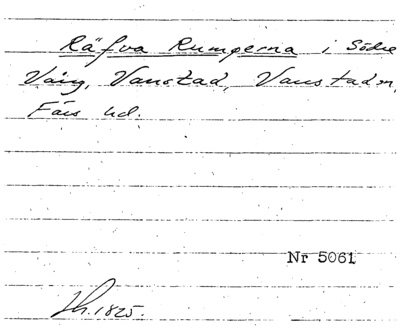 Räfva Rumperna i Södre
Vång, Vanstad, Vanstad sn,
Färs hd.
Nr 5061
Lh. 1825.